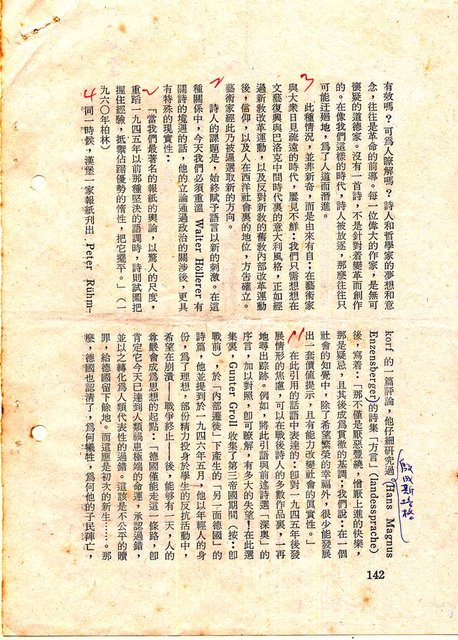 有效嗎?可為人瞭解嗎?詩人和哲學家的夢想和意
念,往往是革命的前導。每一位偉大的作家,是無可
懷疑的道德家。沒有一首詩,不是針對着變革而創作
的。在像我們這樣的時代,詩人被放逐,那麼往往只
可能迂廻地,為了人道而潛進。
3 此種情況,並非新奇,而是由來有自;在藝術家
與大衆日見疏遠的時代,屢見不鮮:我們只需想想在
文藝復興與巴洛克中間時代裏的意大利風格,正如經
過新教改革運動,以及反對新教的舊教內部改革運動
後,信仰,以及人在西洋社會裏的地位,方告確立。
藝術家經此乃被逼選取新的方向。
2 詩人的課題是,始終賦予語言以新的刺激。在這
種關係中,今天我們必須重溫 Walter Höllerer 有
關詩的境遇的話,他的立論通過政治的關涉後,更具
有特殊的現實性:
2 「當我們最著名的報紙的輿論,以驚人的尺度,
重蹈一九四五年以前那種堅決的語調時,詩則試圖把
握住經驗,抵禦佔踞優勢的惰性,把它擺平。」(一
九六○年柏林)
4 同一時候,漢堡一家報紙刊出 Peter Rühm-
korf 的一篇評論,他仔細研究過(Hans Magnus
Enzensberger)的詩集「方言」(landessprache)
後,寫着:「那不僅是厭惡豐饒,憎厭上進的快樂,
那是疑忌,且其後成為貫徹的基調;我們說:在一個
社會的知覺中,除了希望繁榮的幸福外,很少能發展
出一套價值提示,且有能力改變社會的眞實性。」
11 在此引用的話語中表達的:卽對一九四五年後發
展情形的焦慮,可以在戰後詩人的多數作品裏,一再
地尋出踪跡。例如,將此引語與前述詩選「深奧」的
序言,加以對照,卽可瞭解,有多大的失望!在此選
集裏,Gunter Groll 收集了第三帝國期間(按:卽
戰前),於(內部遷徙)下產生的「另一面德國」的
詩篇,他並提到於一九四六年五月,他以年輕人的身
份,為了理想,部份精力投身於學生的反抗活動中,
希望在崩潰——戰爭終止——後,能够有一天,人的
尊嚴會成為思想的起點:「德國僅能走這一條路,卽
肯定它今天已達到人類禍患極端的命運,承認過錯,
並以之轉化為人類代表性的過錯。這該是不公平的贖
罪,給德國留下餘地。而這應是初次的新生……。那
麼,德國也認清了,為何犧牲,為何他的子民陣亡,
142